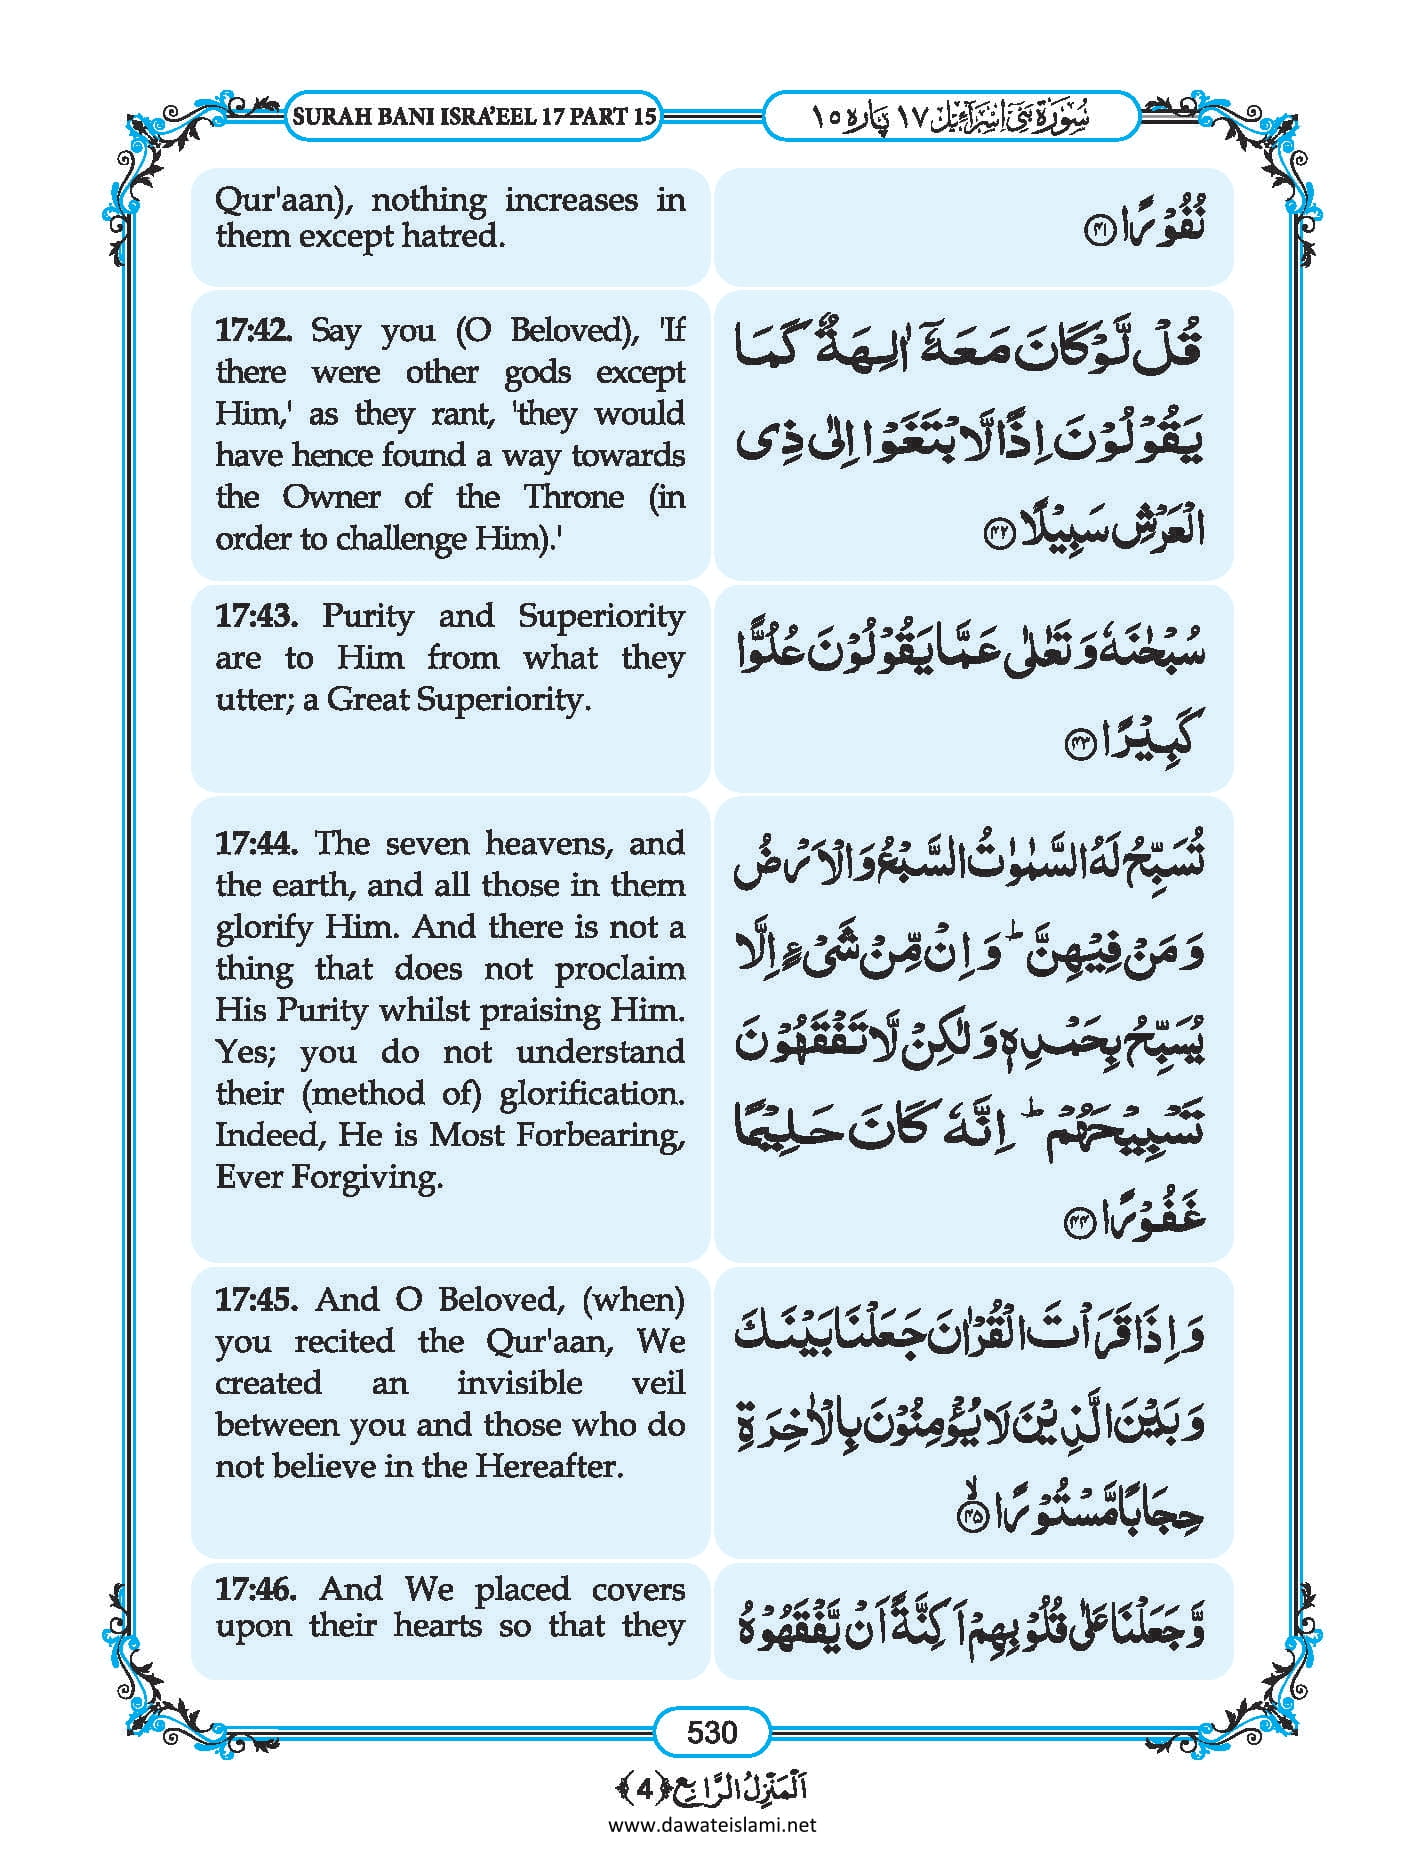 SURAH BANI ISRA’EEL 17 PART 15
سُوْرَۃ بَنِیْۤ اِسْرَآءِیْل ۱۷ پارہ ۱۵
Qur'aan), nothing increases in
them except hatred.
نُفُوْرًا ﴿۴۱﴾
17:42. Say you (O Beloved), 'If
there were other gods except
Him,' as they rant, 'they would
have hence found a way towards
the Owner of the Throne (in
order to challenge Him).'
قُلْ لَّوْ كَانَ مَعَهٗۤ اٰلِهَةٌ كَمَا
یَقُوْلُوْنَ اِذًا لَّابْتَغَوْا اِلٰى ذِی
الْعَرْشِ سَبِیْلًا ﴿۴۲﴾
17:43. Purity and Superiority
are to Him from what they
utter; a Great Superiority.
سُبْحٰنَهٗ وَ تَعٰلٰى عَمَّا یَقُوْلُوْنَ عُلُوًّا
كَبِیْرًا ﴿۴۳﴾
17:44. The seven heavens, and
the earth, and all those in them
glorify Him. And there is not a
thing that does not proclaim
His Purity whilst praising Him.
Yes; you do not understand
their (method of) glorification.
Indeed, He is Most Forbearing,
Ever Forgiving.
تُسَبِّحُ لَهُ السَّمٰوٰتُ السَّبْعُ وَ الْاَرْضُ
وَ مَنْ فِیْهِنَّ ؕ وَ اِنْ مِّنْ شَیْءٍ اِلَّا
یُسَبِّحُ بِحَمْدِهٖ وَ لٰكِنْ لَّا تَفْقَهُوْنَ
تَسْبِیْحَهُمْ ؕ اِنَّهٗ كَانَ حَلِیْمًا
غَفُوْرًا ﴿۴۴﴾
17:45. And O Beloved, (when)
you recited the Qur'aan, We
created an invisible veil
between you and those who do
not believe in the Hereafter.
وَ اِذَا قَرَاْتَ الْقُرْاٰنَ جَعَلْنَا بَیْنَكَ
وَ بَیْنَ الَّذِیْنَ لَا یُؤْمِنُوْنَ بِالْاٰخِرَةِ
حِجَابًا مَّسْتُوْرًا ﴿ۙ۴۵﴾
17:46. And We placed covers
upon their hearts so that they
وَّ جَعَلْنَا عَلٰى قُلُوْبِهِمْ اَكِنَّةً اَنْ یَّفْقَهُوْهُ
530
اَلْمَنْزِلُ الرَّابِع ﴿4﴾
www.dawateislami.net